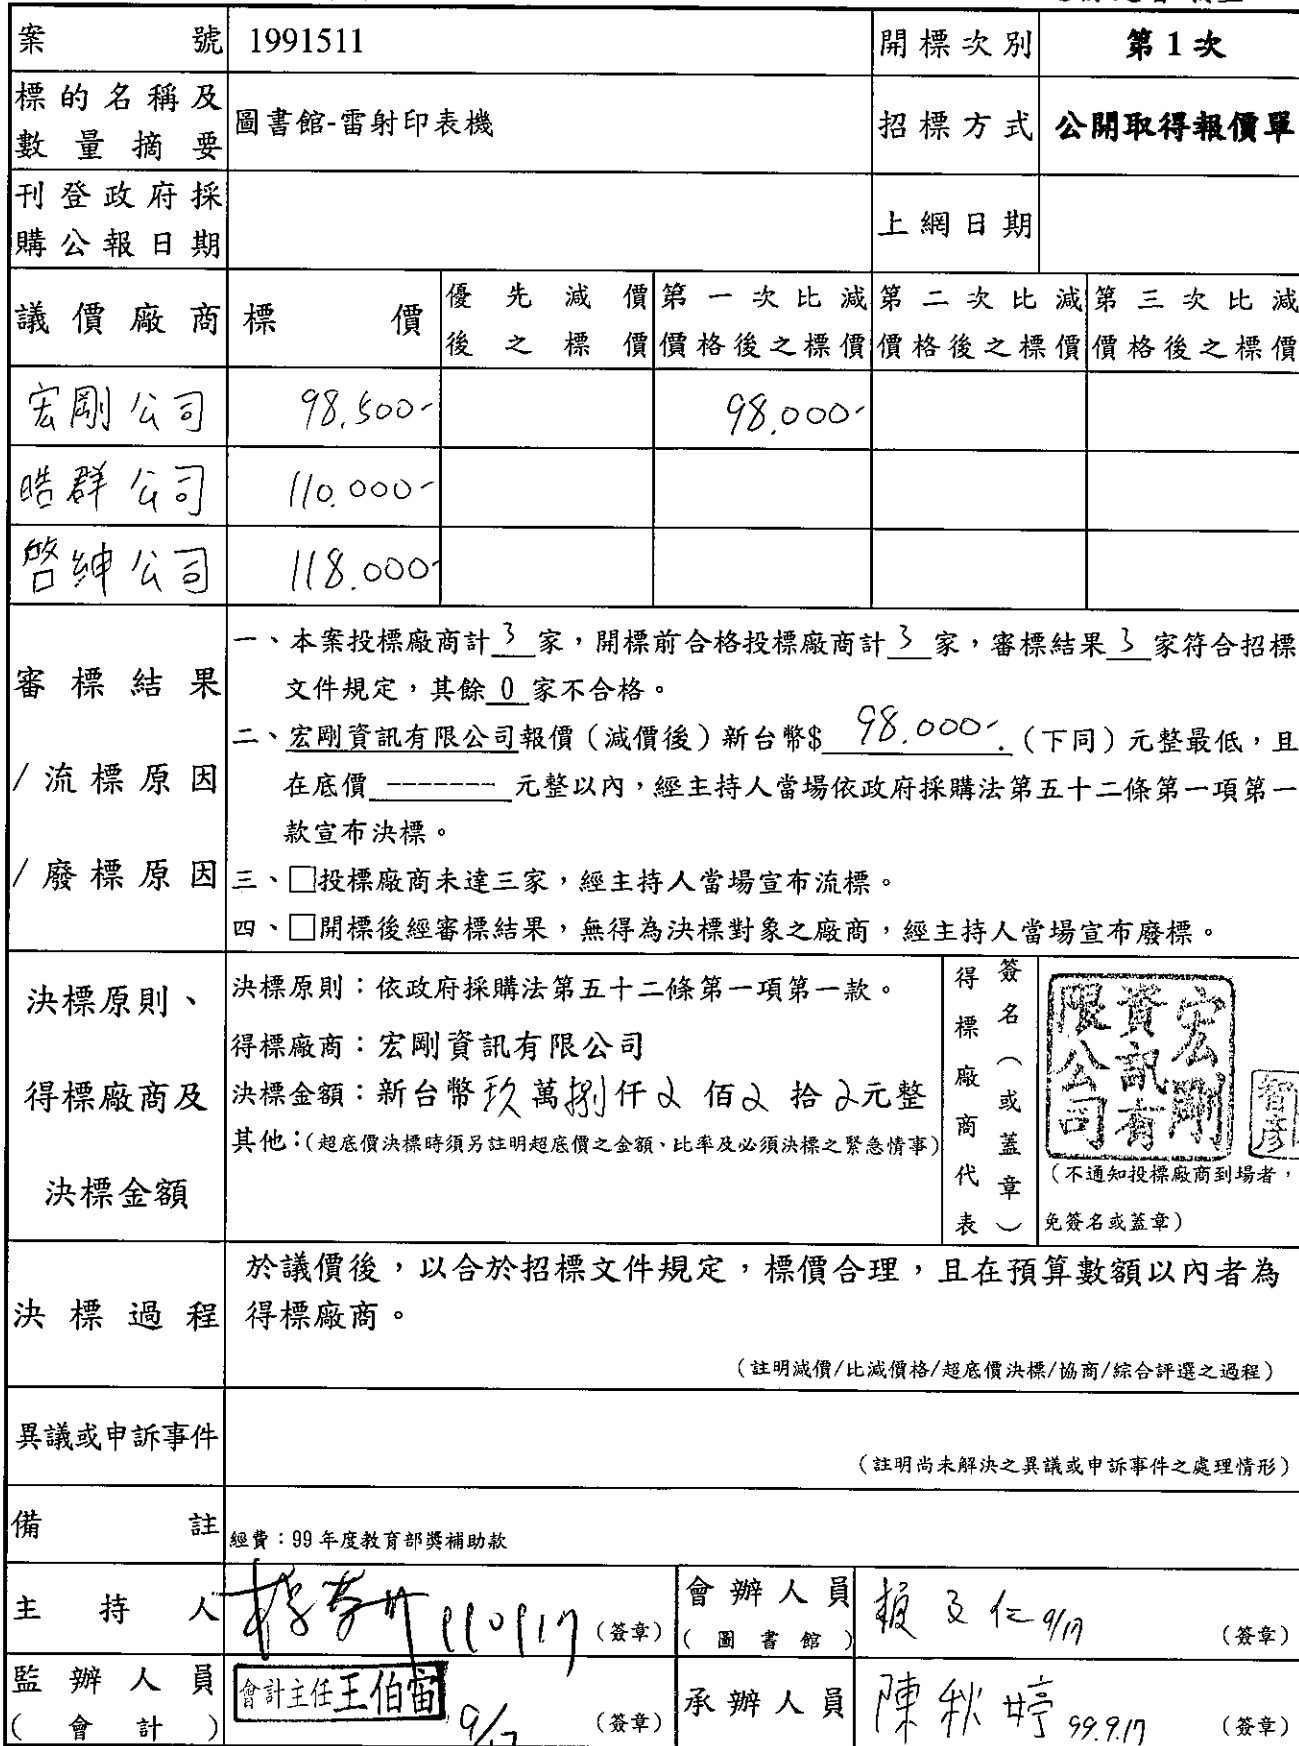 案號 1991511 開標次別 第1次
標的名稱及數量摘要 圖書館-雷射印表機 招標方式 公開取得報價單
刊登政府採購公報日期 上網日期
議價廠商 標價 優先減價後之標價 第一次比減價格後之標價 第二次比減價格後之標價 第三次比減價格後之標價
宏剛公司 98,500- 98,000-
晧群公司 110,000-
啓紳公司 118,000-
審標結果
/流標原因
/廢標原因
一、本案投標廠商計 3 家，開標前合格投標廠商計 3 家，審標結果 3 家符合招標
文件規定，其餘 0 家不合格。
二、宏剛資訊有限公司報價（減價後）新台幣$ 98,000-.（下同）元整最低，且
在底價 ------- 元整以內，經主持人當場依政府採購法第五十二條第一項第一
款宣布決標。
三、□投標廠商未達三家，經主持人當場宣布流標。
四、□開標後經審標結果，無得為決標對象之廠商，經主持人當場宣布廢標。
決標原則、
得標廠商及
決標金額
決標原則：依政府採購法第五十二條第一項第一款。
得標廠商：宏剛資訊有限公司
決標金額：新台幣玖萬捌仟 佰 拾 元整
其他：（超底價決標時須另註明超底價之金額、比率及必須決標之緊急情事）
得標廠商代表
簽名（或蓋章）
宏剛資訊有限公司
智彥
（不通知投標廠商到場者，
免簽名或蓋章）
決標過程
於議價後，以合於招標文件規定，標價合理，且在預算數額以內者為
得標廠商。
（註明減價/比減價格/超底價決標/協商/綜合評選之過程）
異議或申訴事件
（註明尚未解決之異議或申訴事件之處理情形）
備註 經費：99 年度教育部獎補助款
主持人 990917 （簽章） 會辦人員（圖書館） 文仁 9/17 （簽章）
監辦人員（會計） 會計主任王伯宙 9/17 （簽章） 承辦人員 陳秋婷 99.9.17 （簽章）